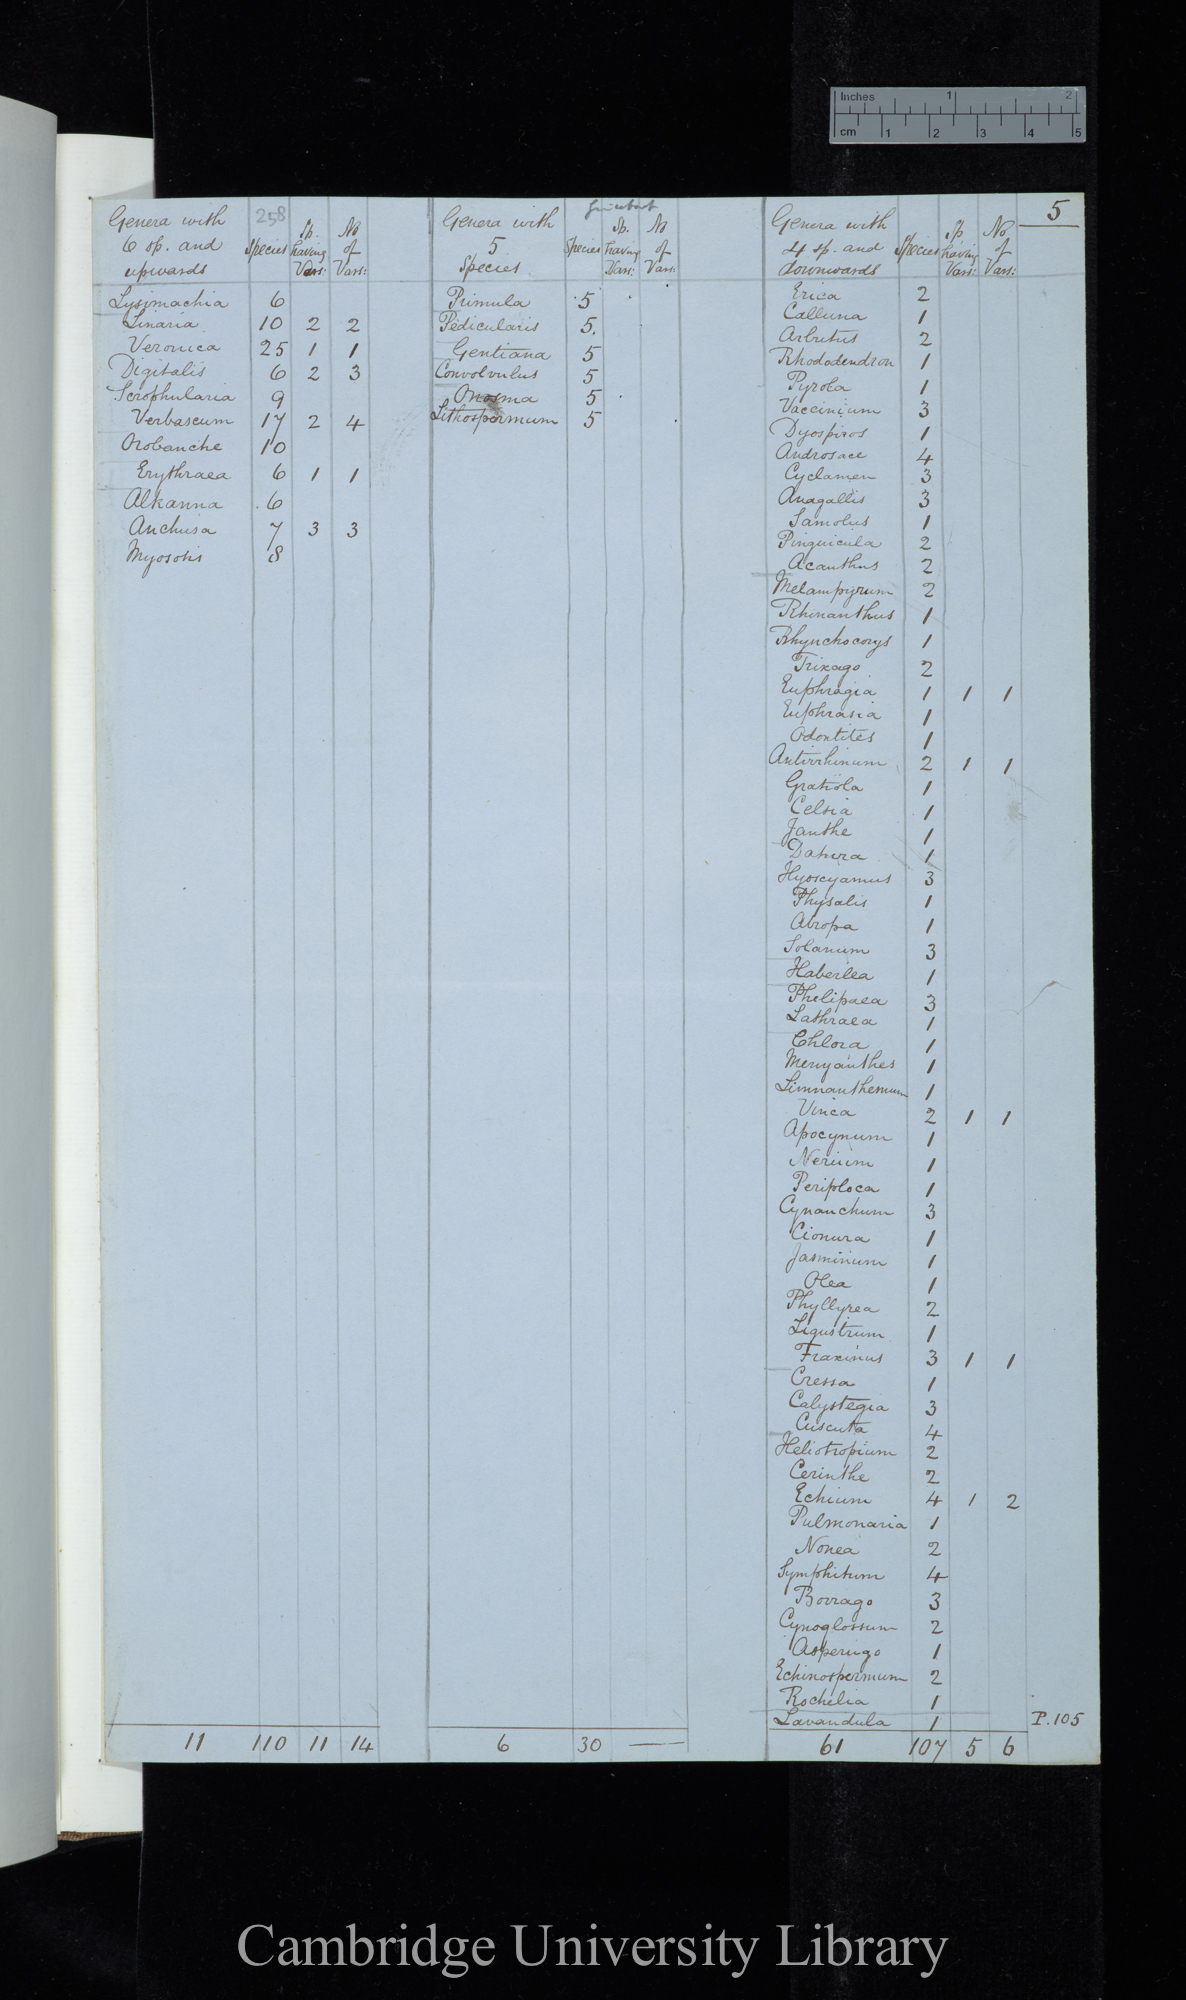 Inches 1 2
cm 1 2 3 4 5
5
258
Genera with
6 sp. and
upwards
Species
Sp.
having
Vars:
No
of
Vars:
Lysimachia 6
Linaria 10 2 2
Veronica 25 1 1
Digitalis 6 2 3
Scrophularia 9
Verbascum 17 2 4
Orobanche 10
Erythraea 6 1 1
Alkanna 6
Anchusa 7 3 3
Myosotis 8
11 110 11 14
Genera with
5
Species
Species
Sp.
having
Vars:
No
of
Vars:
Primula 5
Pedicularis 5.
Gentiana 5
Convolvulus 5
Onosma 5
Lithospermum 5
6 30 —
Genera with
4 sp. and
downwards
Species
Sp
having
Vars:
No
of
Vars:
Erica 2
Calluna 1
Arbutus 2
Rhododendron 1
Pyrola 1
Vaccinium 3
Dyospiros 1
Androsace 4
Cyclamen 3
Anagallis 3
Samolus 1
Pinguicula 2
Acanthus 2
Melampyrum 2
Rhinanthus 1
Rhynchocorys 1
Trixago 2
Euphragia 1 1 1
Euphrasia 1
Odontites 1
Antirrhinum 2 1 1
Gratiola 1
Celsia 1
Janthe 1
Datura 1
Hyoscyamus 3
Physalis 1
Atropa 1
Solanum 3
Haberlea 1
Phelipaea 3
Lathraea 1
Chlora 1
Menyanthes 1
Limnanthemum 1
Vinca 2 1 1
Apocynum 1
Nerium 1
Periploca 1
Cynanchum 3
Cionura 1
Jasminum 1
Olea 1
Phyllyrea 2
Ligustrum 1
Fraxinus 3 1 1
Cressa 1
Calystegia 3
Cuscuta 4
Heliotropium 2
Cerinthe 2
Echium 4 1 2
Pulmonaria 1
Nonea 2
Symphitum 4
Borrago 3
Cynoglossum 2
Asperugo 1
Echinospermum 2
Rochelia 1
Lavandula 1 P. 105
61 107 5 6
Cambridge University Library